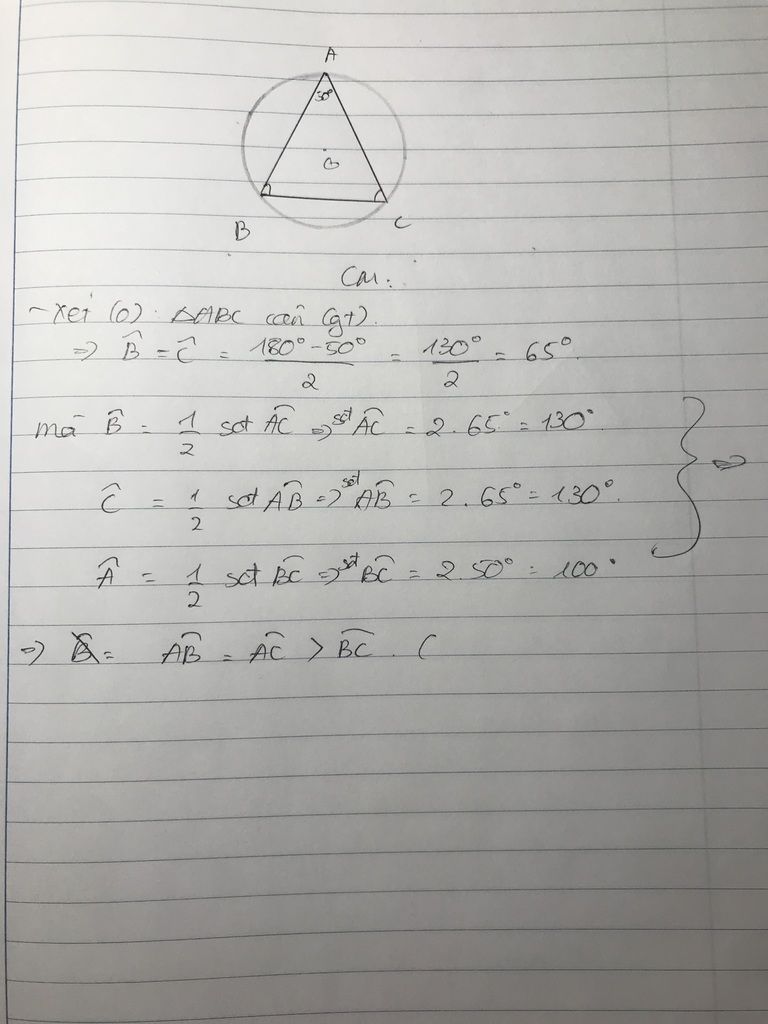 A
50°
O
B
C
CM:
- Xét (O). △ABC cân (gt).
=> B̂ = Ĉ = (180° - 50°)/2 = 130°/2 = 65°.
mà B̂ = 1/2 sđ AC => sđ AC = 2.65° = 130°.
Ĉ = 1/2 sđ AB => sđ AB = 2.65° = 130°.
Â = 1/2 sđ BC => sđ BC = 2.50° = 100°
=>
=> = AB = AC > BC. (